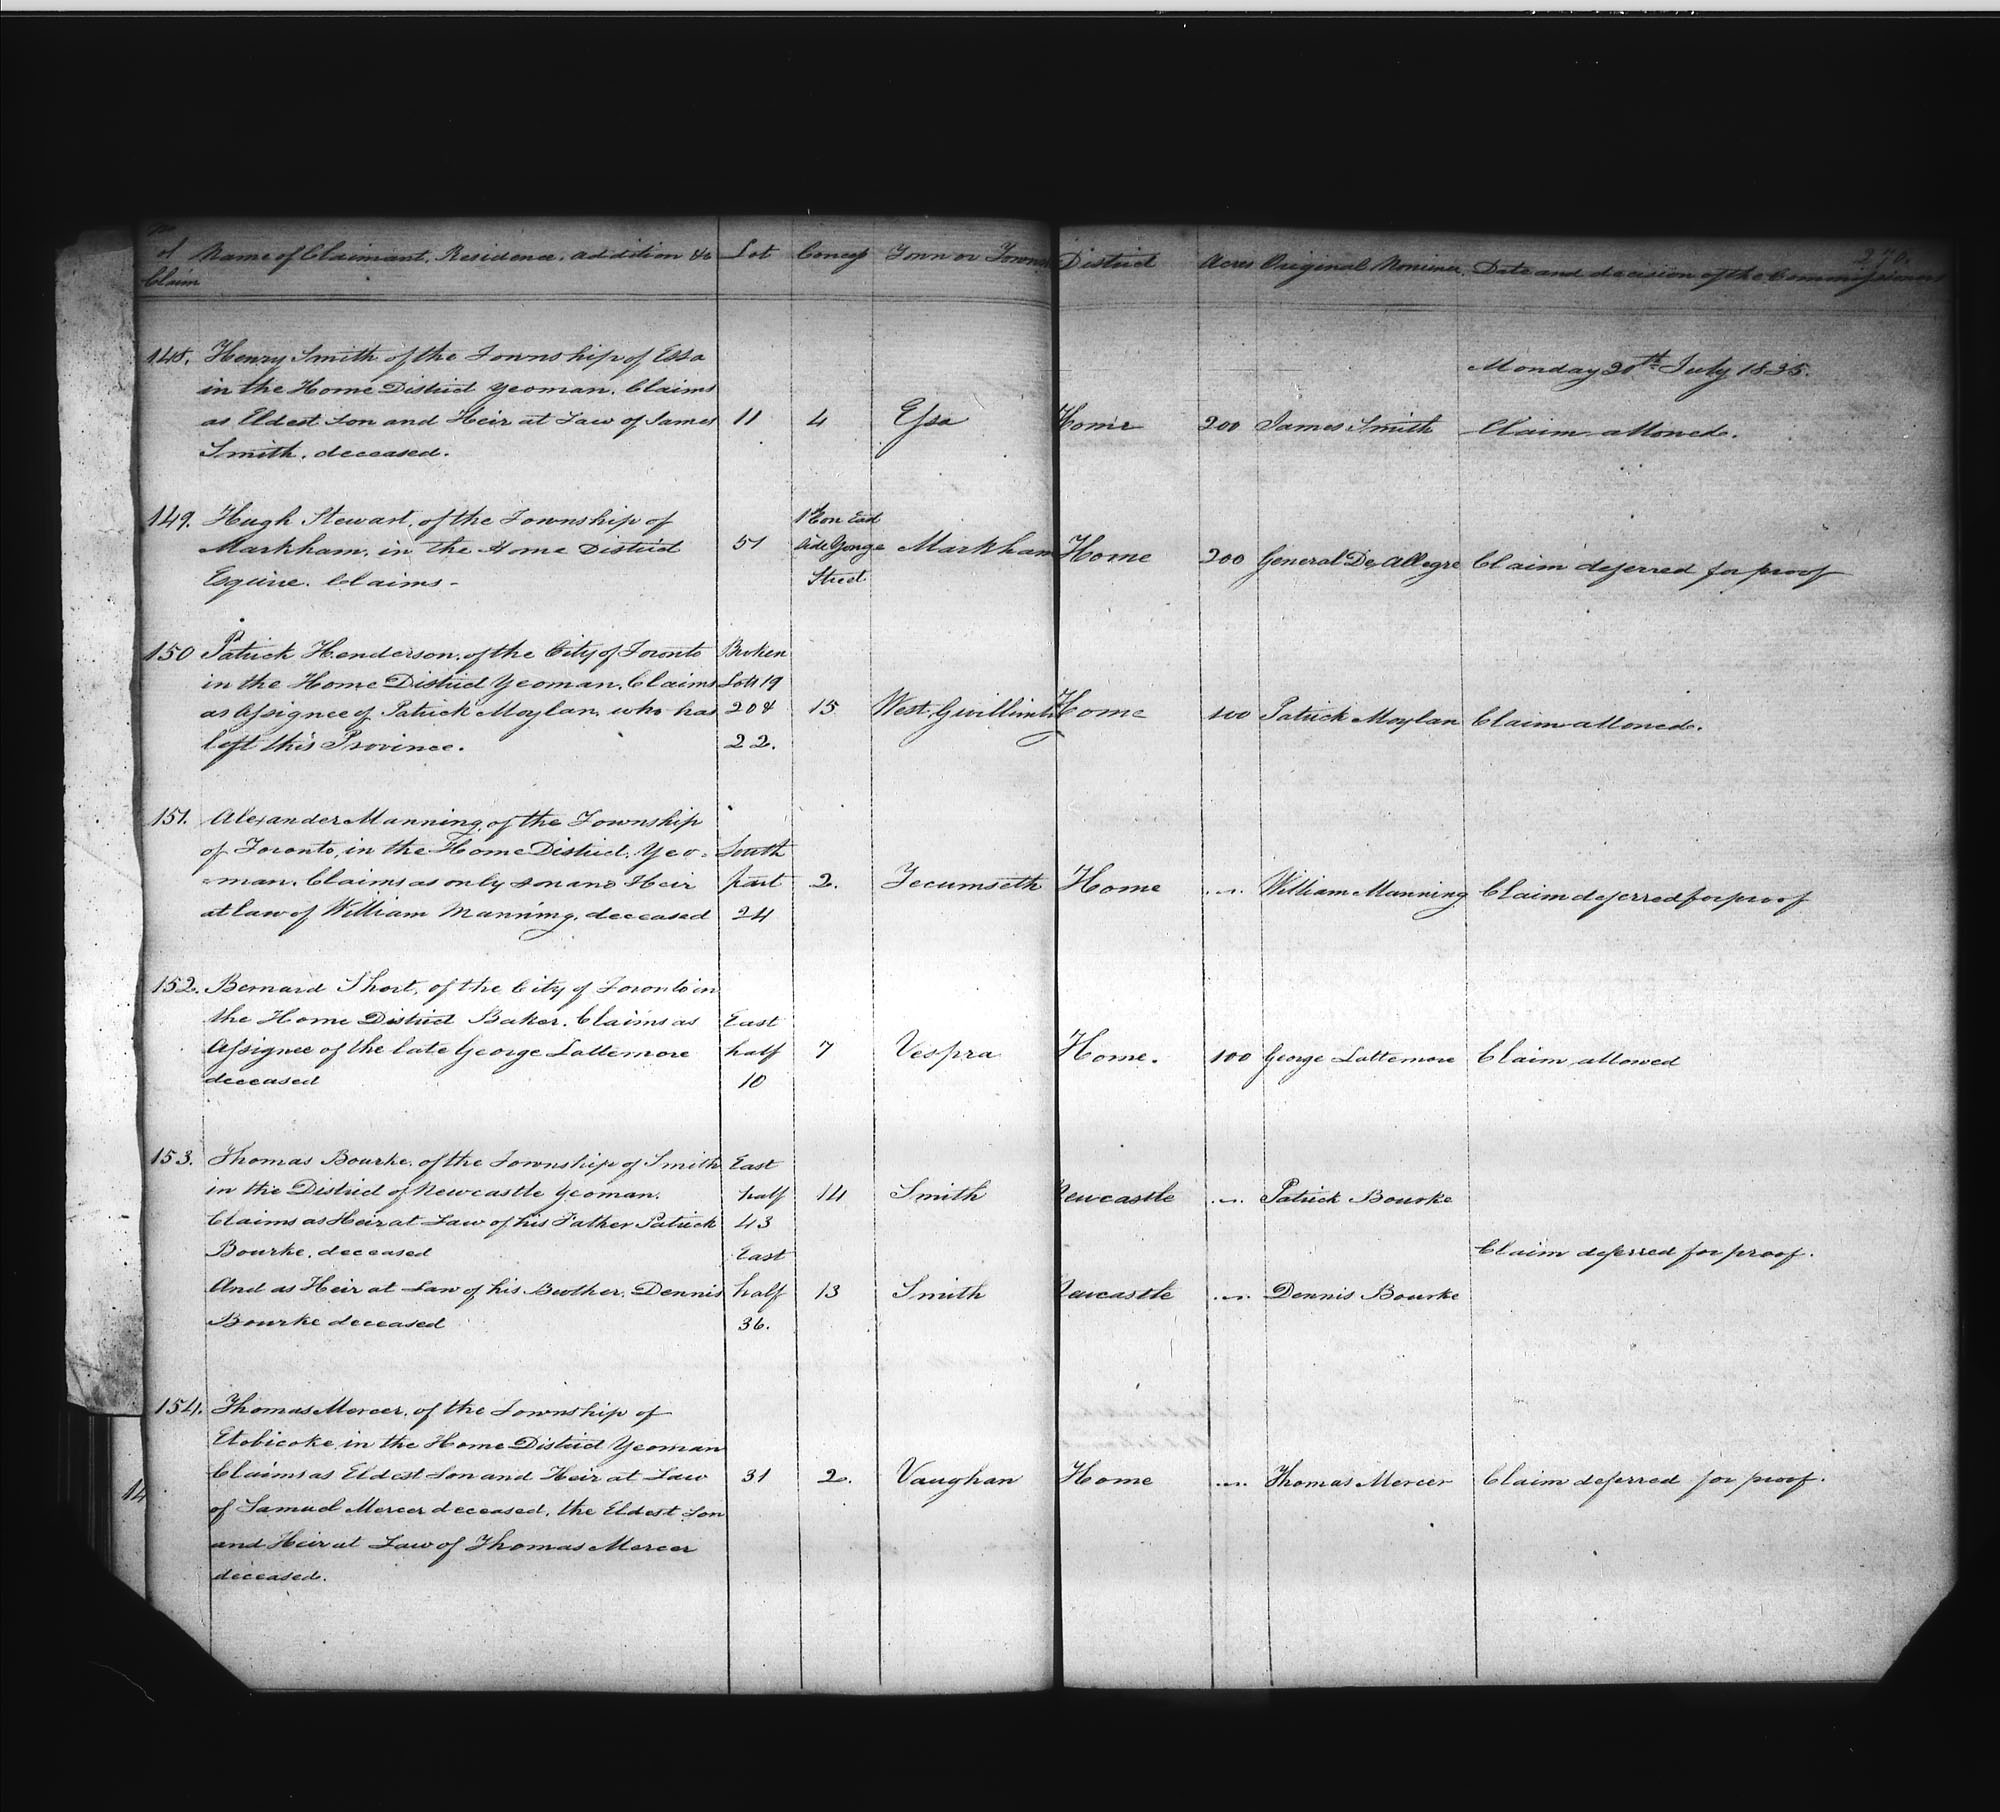 No
of Name of Claimant, Residence, addition &c Lot Concess Town or Towns District Acres Original Nominee Date and decision of the Commissioners
Claim
270.
148. Henry Smith of the Township of Essa
in the Home District Yeoman. Claims
as Eldest Son and Heir at Law of James
Smith, deceased.
11 4 Essa Home 200 James Smith
Monday 20th July 1835.
Claim allowed.
149. Hugh Stewart, of the Township of
Markham, in the Home District
Esquire. Claims -
51
1st Con East
side Yonge
Street
Markham Home 200 General De Allegre Claim deferred for proof
150 Patrick Henderson, of the City of Toronto
in the Home District Yeoman. Claims
as Assignee of Patrick Moylan, who has
left this Province.
Broken
Lots 19
20 &
22.
15 West Gwillimby Home 100 Patrick Moylan Claim allowed.
151. Alexander Manning, of the Township
of Toronto, in the Home District, Yeo-
=man. Claims as only son and Heir
at law of William Manning, deceased
South
part
24
2. Tecumseth Home William Manning Claim deferred for proof
152. Bernard Short, of the City of Toronto in
the Home District Baker. Claims as
Assignee of the late George Lattemore
deceased
East
half
10
7 Vespra Home. 100 George Lattemore Claim allowed
153. Thomas Bourke, of the Township of Smith
in the District of Newcastle Yeoman.
Claims as Heir at Law of his Father Patrick
Bourke, deceased
East
half
43
14 Smith Newcastle Patrick Bourke
And as Heir at Law of his Brother, Dennis
Bourke deceased
East
half
36.
13 Smith Newcastle Dennis Bourke
Claim deferred for proof.
154. Thomas Mercer, of the Township of
Etobicoke, in the Home District Yeoman
Claims as Eldest Son and Heir at Law
of Samuel Mercer deceased, the Eldest Son
and Heir at Law of Thomas Mercer
deceased.
31 2. Vaughan Home Thomas Mercer Claim deferred for proof.
14